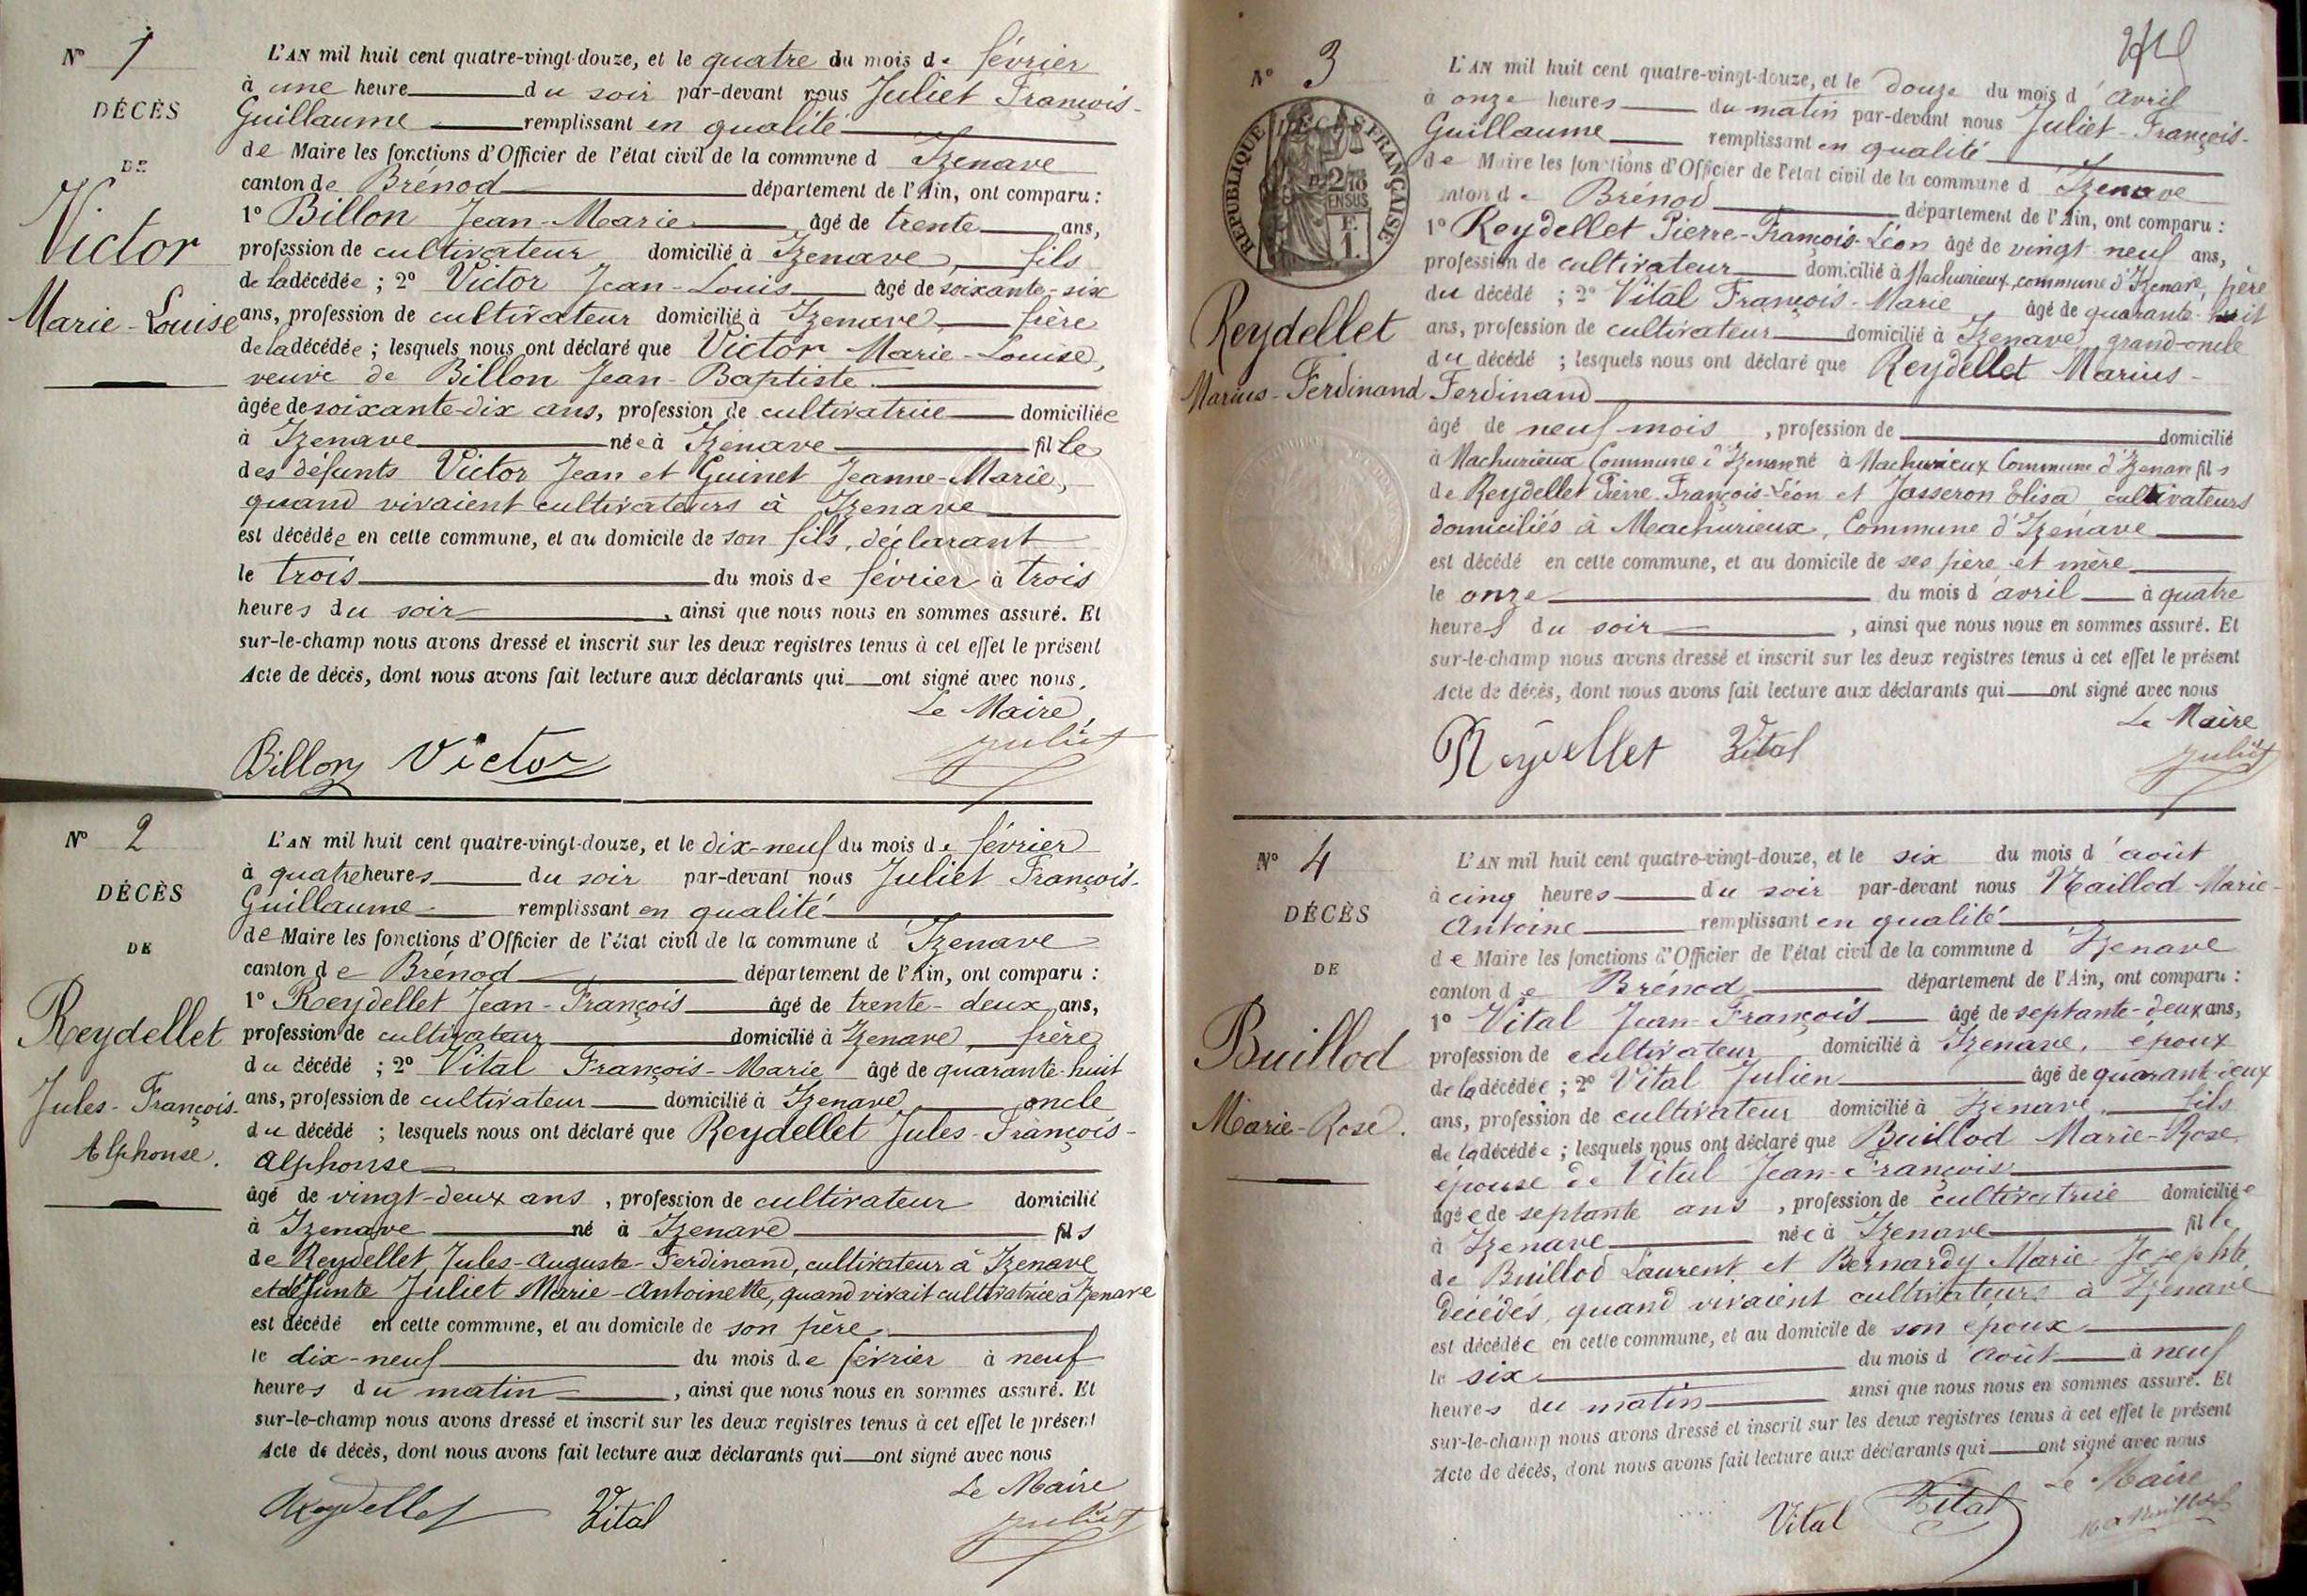 N° 1
DÉCÈS
DE
Victor
Marie-Louise
L'AN mil huit cent quatre-vingt-douze, et le quatre du mois de février
à une heure du soir par-devant nous Juliet François-
Guillaume remplissant en qualité
de Maire les fonctions d'Officier de l'état civil de la commune d'Izenave
canton de Brénod département de l'Ain, ont comparu :
1° Billon Jean-Marie âgé de trente ans,
profession de cultivateur domicilié à Izenave, fils
de la décédée ; 2° Victor Jean-Louis âgé de soixante-six
ans, profession de cultivateur domicilié à Izenave, frère
de la décédée ; lesquels nous ont déclaré que Victor Marie-Louise,
veuve de Billon Jean-Baptiste
âgée de soixante-dix ans, profession de cultivatrice domiciliée
à Izenave née à Izenave fille
des défunts Victor Jean et Guinet Jeanne-Marie,
quand vivaient cultivateurs à Izenave
est décédée en cette commune, et au domicile de son fils, déclarant
le trois du mois de février à trois
heures du soir, ainsi que nous nous en sommes assuré. Et
sur-le-champ nous avons dressé et inscrit sur les deux registres tenus à cet effet le présent
Acte de décès, dont nous avons fait lecture aux déclarants qui ont signé avec nous,
Le Maire,
Billon Victor Juliet
N° 2
DÉCÈS
DE
Reydellet
Jules-François-
Alphonse.
L'AN mil huit cent quatre-vingt-douze, et le dix-neuf du mois de février
à quatre heures du soir par-devant nous Juliet François-
Guillaume remplissant en qualité
de Maire les fonctions d'Officier de l'état civil de la commune d'Izenave
canton de Brénod département de l'Ain, ont comparu :
1° Reydellet Jean-François âgé de trente-deux ans,
profession de cultivateur domicilié à Izenave, frère
du décédé ; 2° Vital François-Marie âgé de quarante-huit
ans, profession de cultivateur domicilié à Izenave, oncle
du décédé ; lesquels nous ont déclaré que Reydellet Jules-François-
Alphonse
âgé de vingt-deux ans, profession de cultivateur domicilié
à Izenave né à Izenave fils
de Reydellet Jules-Auguste-Ferdinand, cultivateur à Izenave
et défunte Juliet Marie-Antoinette, quand vivait cultivatrice à Izenave
est décédé en cette commune, et au domicile de son père
le dix-neuf du mois de février à neuf
heures du matin, ainsi que nous nous en sommes assuré. Et
sur-le-champ nous avons dressé et inscrit sur les deux registres tenus à cet effet le présent
Acte de décès, dont nous avons fait lecture aux déclarants qui ont signé avec nous
Le Maire
Reydellet Vital Juliet
N° 3
RÉPUBLIQUE FRANÇAISE
2/10
EN SUS
F.
1.
Reydellet
Marius-Ferdinand
L'AN mil huit cent quatre-vingt-douze, et le douze du mois d'avril
à onze heures du matin par-devant nous Juliet-François-
Guillaume remplissant en qualité
de Maire les fonctions d'Officier de l'état civil de la commune d'Izenave
canton de Brénod département de l'Ain, ont comparu :
1° Reydellet Pierre-François-Léon âgé de vingt-neuf ans,
profession de cultivateur domicilié à Machurieux, commune d'Izenave, père
du décédé ; 2° Vital François-Marie âgé de quarante-huit
ans, profession de cultivateur domicilié à Izenave, grand-oncle
du décédé ; lesquels nous ont déclaré que Reydellet Marius-
Ferdinand
âgé de neuf mois, profession de domicilié
à Machurieux Commune d'Izenave né à Machurieux Commune d'Izenave fils
de Reydellet Pierre-François-Léon et Josseron Elisa cultivateurs
domiciliés à Machurieux, Commune d'Izenave
est décédé en cette commune, et au domicile de ses père et mère
le onze du mois d'avril à quatre
heures du soir, ainsi que nous nous en sommes assuré. Et
sur-le-champ nous avons dressé et inscrit sur les deux registres tenus à cet effet le présent
Acte de décès, dont nous avons fait lecture aux déclarants qui ont signé avec nous
Le Maire
Reydellet Vital Juliet
N° 4
DÉCÈS
DE
Buillod
Marie-Rose.
L'AN mil huit cent quatre-vingt-douze, et le six du mois d'août
à cinq heures du soir par-devant nous Naillod Marie-
Antoine remplissant en qualité
de Maire les fonctions d'Officier de l'état civil de la commune d'Izenave
canton de Brénod département de l'Ain, ont comparu :
1° Vital Jean-François âgé de septante-deux ans,
profession de cultivateur domicilié à Izenave, époux
de la décédée ; 2° Vital Julien âgé de quarante-deux
ans, profession de cultivateur domicilié à Izenave, fils
de la décédée ; lesquels nous ont déclaré que Buillod Marie-Rose
épouse de Vital Jean-François
âgée de septante ans, profession de cultivatrice domiciliée
à Izenave née à Izenave fille
de Buillod Laurent et Bernardy Marie-Josephte
décédés, quand vivaient cultivateurs à Izenave
est décédée en cette commune, et au domicile de son époux
le six du mois d'août à neuf
heures du matin ainsi que nous nous en sommes assuré. Et
sur-le-champ nous avons dressé et inscrit sur les deux registres tenus à cet effet le présent
Acte de décès, dont nous avons fait lecture aux déclarants qui ont signé avec nous
Le Maire
Vital Vital